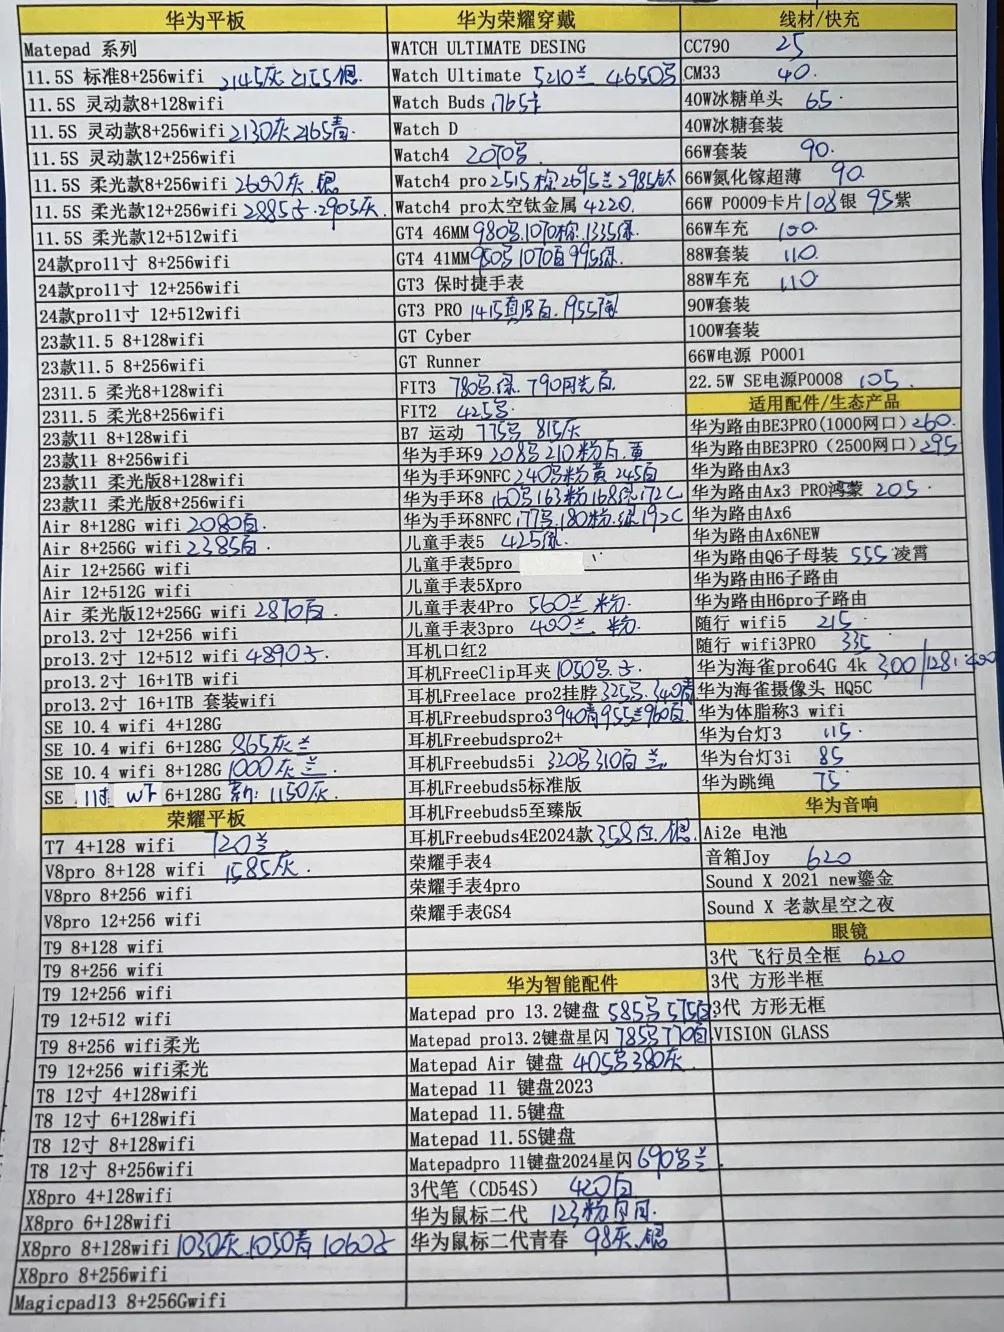 华为平板
Matepad 系列
11.5S 标准8+256wifi 2145灰 2155银.
11.5S 灵动款8+128wifi
11.5S 灵动款8+256wifi 2130灰 2165青.
11.5S 灵动款12+256wifi
11.5S 柔光款8+256wifi 2600灰.银
11.5S 柔光款12+256wifi 2885 2905灰.
11.5S 柔光款12+512wifi
24款pro11寸 8+256wifi
24款pro11寸 12+256wifi
24款pro11寸 12+512wifi
23款11.5 8+128wifi
23款11.5 8+256wifi
2311.5 柔光8+128wifi
2311.5 柔光8+256wifi
23款11 8+128wifi
23款11 8+256wifi
23款11 柔光版8+128wifi
23款11 柔光版8+256wifi
Air 8+128G wifi 2080白.
Air 8+256G wifi 2385白.
Air 12+256G wifi
Air 12+512G wifi
Air 柔光版12+256G wifi 2870白.
pro13.2寸 12+256 wifi
pro13.2寸 12+512 wifi 4890
pro13.2寸 16+1TB wifi
pro13.2寸 16+1TB 套装wifi
SE 10.4 wifi 4+128G
SE 10.4 wifi 6+128G 865灰兰
SE 10.4 wifi 8+128G 1000灰兰.
SE 11寸 wF 6+128G 1150灰.
荣耀平板
T7 4+128 wifi 120兰
V8pro 8+128 wifi 1585灰.
V8pro 8+256 wifi
V8pro 12+256 wifi
T9 8+128 wifi
T9 8+256 wifi
T9 12+256 wifi
T9 12+512 wifi
T9 8+256 wifi柔光
T9 12+256 wifi柔光
T8 12寸 4+128wifi
T8 12寸 6+128wifi
T8 12寸 8+128wifi
T8 12寸 8+256wifi
X8pro 4+128wifi
X8pro 6+128wifi
X8pro 8+128wifi 1030灰.1050青 1060
X8pro 8+256wifi
Magicpad13 8+256Gwifi
华为荣耀穿戴
WATCH ULTIMATE DESING
Watch Ultimate 5210兰 4650
Watch Buds 1765
Watch D
Watch4 2070
Watch4 pro 2515棕.2695兰 2985钛
Watch4 pro太空钛金属 4220.
GT4 46MM 980 1070棕.1335绿.
GT4 41MM 950 1070白 995绿.
GT3 保时捷手表
GT3 PRO 1415真皮白. 1955
GT Cyber
GT Runner
FIT3 780 绿. 790月光白.
FIT2 425
B7 运动 775 815灰
华为手环9 208 210粉白.黄
华为手环9NFC 240 粉黄 245白
华为手环8 160 163粉 168绿.172C
华为手环8NFC 177 180粉.绿192C
儿童手表5 425绿.
儿童手表5pro
儿童手表5Xpro
儿童手表4Pro 560兰 粉.
儿童手表3pro 400兰 粉.
耳机口红2
耳机FreeClip耳夹 1050
耳机Freelace pro2挂脖 325 340青
耳机Freebudspro3 940青955兰960白
耳机Freebudspro2+
耳机Freebuds5i 320 310白 兰.
耳机Freebuds5标准版
耳机Freebuds5至臻版
耳机Freebuds4E2024款 358白.银.
荣耀手表4
荣耀手表4pro
荣耀手表GS4
华为智能配件
Matepad pro 13.2键盘 585 575白
Matepad pro13.2键盘星闪 785 770白
Matepad Air 键盘 405 380灰.
Matepad 11 键盘2023
Matepad 11.5键盘
Matepad 11.5S键盘
Matepadpro 11键盘2024星闪 690 兰.
3代笔（CD54S） 420白
华为鼠标二代 123粉
华为鼠标二代青春 98灰.银
线材/快充
CC790 25
CM33 40.
40W冰糖单头 65.
40W冰糖套装
66W套装 90.
66W氮化镓超薄 90.
66W P0009卡片 108银 95紫
66W车充 100.
88W套装 110.
88W车充 110
90W套装
100W套装
66W电源 P0001
22.5W SE电源P0008 105.
适用配件/生态产品
华为路由BE3PRO(1000网口) 260.
华为路由BE3PRO（2500网口） 295
华为路由Ax3
华为路由Ax3 PRO鸿蒙 205.
华为路由Ax6
华为路由Ax6NEW
华为路由Q6子母装 555 凌霄
华为路由H6子路由
华为路由H6pro子路由
随行 wifi5 215
随行 wifi3PRO 335
华为海雀pro64G 4k 300/128:400
华为海雀摄像头 HQ5C
华为体脂称3 wifi
华为台灯3 115.
华为台灯3i 85
华为跳绳 75
华为音响
Ai2e 电池
音箱Joy 620
Sound X 2021 new鎏金
Sound X 老款星空之夜
眼镜
3代 飞行员全框 620
3代 方形半框
3代 方形无框
VISION GLASS